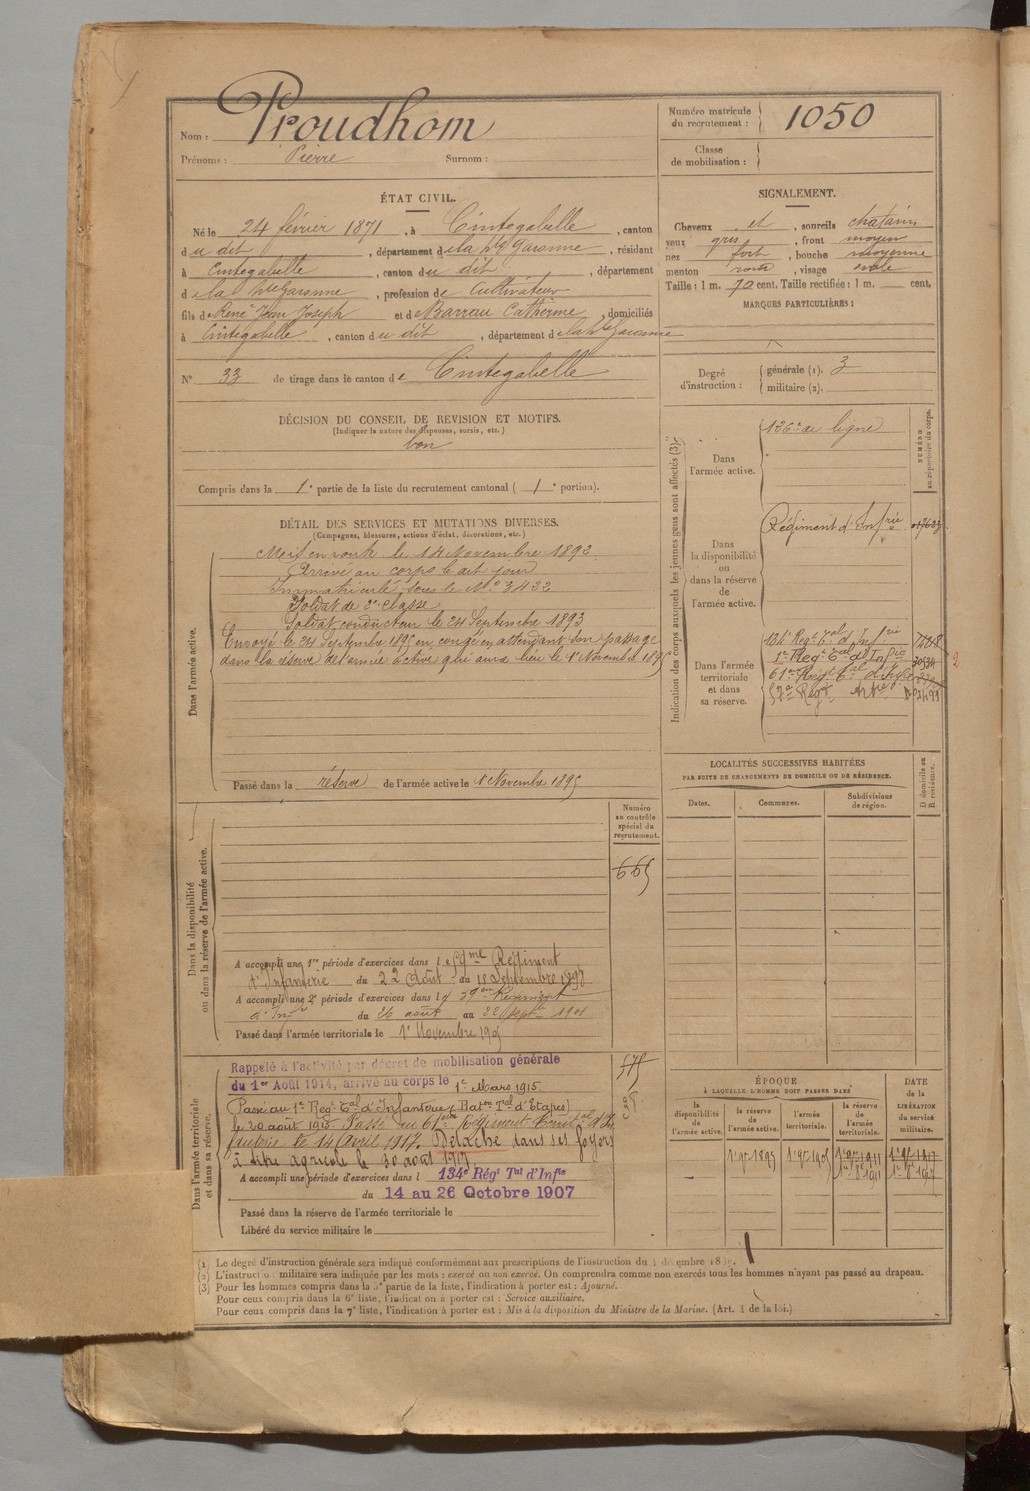 Nom : Proudhom
Prénoms : Pierre Surnom :
Numéro matricule du recrutement : 1050
Classe de mobilisation :
ÉTAT CIVIL.
Né le 24 février 1871, à Cintegabelle, canton
du dit, département de la Hte Garonne, résidant
à Cintegabelle, canton du dit, département
de la Hte Garonne, profession de Cultivateur
fils de René Jean Joseph et de Barrau Catherine, domiciliés
à Cintegabelle, canton du dit, département de la Hte Garonne
N° 33 de tirage dans le canton de Cintegabelle
SIGNALEMENT.
Cheveux et, sourcils chatains
yeux gris, front moyen
nez fort, bouche moyenne
menton rond, visage ovale
Taille : 1 m. 70 cent. Taille rectifiée : 1 m. cent.
MARQUES PARTICULIÈRES :
Degré d'instruction : générale (1). 3
militaire (2).
DÉCISION DU CONSEIL DE REVISION ET MOTIFS.
(Indiquer la nature des dispenses, sursis, etc.)
bon
Compris dans la 1e partie de la liste du recrutement cantonal (1e portion).
DÉTAIL DES SERVICES ET MUTATIONS DIVERSES.
(Campagnes, blessures, actions d'éclat, décorations, etc.)
Dans l'armée active.
Mis en route le 14 Novembre 1892
Arrivé au corps le dit jour
Immatriculé sous le N° 3422
Soldat de 2e classe
Soldat conducteur le 24 Septembre 1893
Envoyé le 24 Septembre 1895 en congé en attendant son passage
dans la réserve de l'armée active qui aura lieu le 1er Novembre 1895
Passé dans la réserve de l'armée active le 1er Novembre 1895
Indication des corps auxquels les jeunes gens sont affectés (3).
NUMÉRO au répertoire du corps.
Dans l'armée active.
126e de ligne
Dans la disponibilité ou dans la réserve de l'armée active.
Régiment d'Infrie
Dans l'armée territoriale et dans sa réserve.
134e Regt Tal d'Infrie
1er Regt Tal d'Infie 30534
61e Regt Tal d'Infie
Regt Artie
2
LOCALITÉS SUCCESSIVES HABITÉES
PAR SUITE DE CHANGEMENTS DE DOMICILE OU DE RÉSIDENCE.
Dates. Communes. Subdivisions de région. D domicile ou R résidence.
Numéro au contrôle spécial du recrutement.
665
Dans la disponibilité ou dans la réserve de l'armée active.
A accompli une 1re période d'exercices dans le 59me Régiment
d'Infanterie du 22 Août au 18 Septembre 1898
A accompli une 2e période d'exercices dans le 59em Régiment
d'Infie du 26 août au 22 Septe 1901
Passé dans l'armée territoriale le 1er Novembre 1905
Dans l'armée territoriale et dans sa réserve.
Rappelé à l'activité par décret de mobilisation générale
du 1er Août 1914, arrivé au corps le 1er Mars 1915
Passé au 1er Regt Tal d'Infanterie (Baton Tal d'Etapes)
le 20 août 1915 Passé au 61ème Régiment Territal d'In
fanterie le 14 Avril 1917. Détaché dans ses foyers
à titre agricole le 30 août 1917
A accompli une période d'exercices dans l 134e Régt Tal d'Infie
du 14 au 26 Octobre 1907
Passé dans la réserve de l'armée territoriale le
Libéré du service militaire le
ÉPOQUE
À LAQUELLE L'HOMME DOIT PASSER DANS
la disponibilité de l'armée active. la réserve de l'armée active. l'armée territoriale. la réserve de l'armée territoriale.
DATE de la LIBÉRATION du service militaire.
1er 9bre 1895 1er 9bre 1905 1er 9bre 1911 1er 9bre 1917
1er 8bre 1911 1er 8bre 1917
(1) Le degré d'instruction générale sera indiqué conformément aux prescriptions de l'instruction du
(2) L'instruction militaire sera indiquée par les mots : exercé ou non exercé. On comprendra comme non exercés tous les hommes n'ayant pas passé au drapeau.
(3) Pour les hommes compris dans la 5e partie de la liste, l'indication à porter est : Ajourné.
Pour ceux compris dans la 6e liste, l'indication à porter est : Service auxiliaire.
Pour ceux compris dans la 7e liste, l'indication à porter est : Mis à la disposition du Ministre de la Marine. (Art. 4 de la loi.)